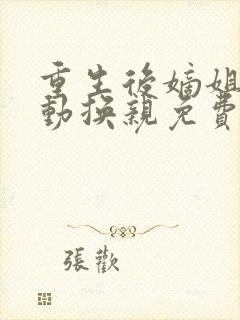 重生後嫡姐
動換親免費
張歡